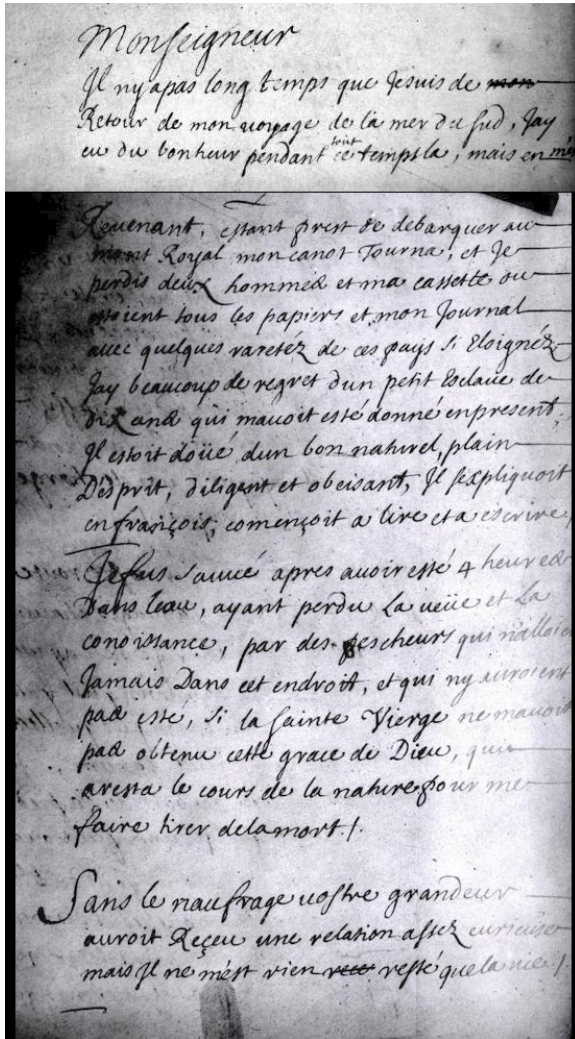 Monseigneur
Il ny a pas long temps que Jesuis de mon
Retour de mon voyage de la mer du sud, Jay
eu du bonheur pendant tout ce temps la, mais en
Revenant, estant prest de debarquer au
mont Royal mon canot Tourna, et Je
perdis deux hommes et ma cassette ou
estoient tous les papiers et mon Journal
avec quelques raretez de ces pays si Eloignéz
Jay beaucoup de regret dun petit Esclave de
dix ans qui mavoit esté donné en present,
Il estoit doüé dun bon naturel, plain
Desprit, diligent et obeisant, Il sexpliquoit
en françois, començoit a lire et a escrire,
Je fus sauvé apres avoir esté 4 heures
Dans leau, ayant perdu La veüe et La
conoissance, par des pescheurs qui nalloient
Jamais Dans cet endroit, et qui ny auroient
pas esté, si la sainte Vierge ne mavoit
pas obtenu cette grace de Dieu, qui
aresta le cours de la nature pour me
faire tirer de la mort./.
Sans le naufrage vostre grandeur
auroit Reçeu une relation assez curieuse
mais Il ne mést rien resté que la vie./